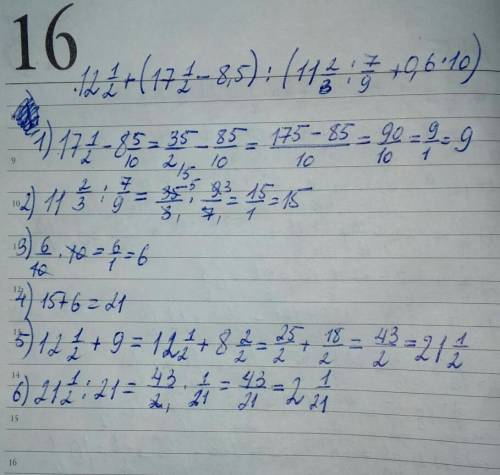 16
12 1/2 + (17 1/2 - 8,5) : (11 2/3 : 7/9 + 0,6 · 10)
1) 17 1/2 - 8 5/10 = 35/2 - 85/10 = (175 - 85)/10 = 90/10 = 9/1 = 9
9
2) 11 2/3 : 7/9 = 35/3 · 9/7 = 15/1 = 15
10
3) 6/10 · 10 = 6/1 = 6
4) 15 + 6 = 21
12
5) 12 1/2 + 9 = 12 1/2 + 8 2/2 = 25/2 + 18/2 = 43/2 = 21 1/2
14
6) 21 1/2 : 21 = 43/2 · 1/21 = 43/21 = 2 1/21
15
16